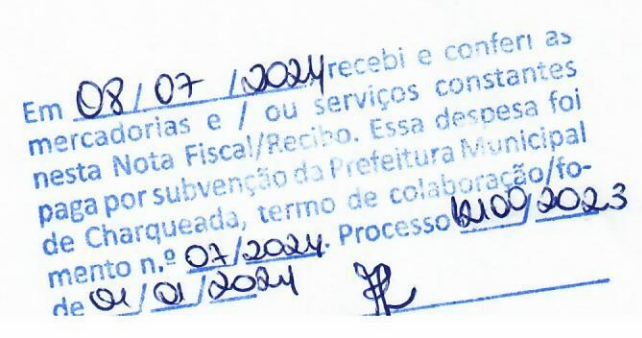 Em 08/07/2024 recebi e conferi as
mercadorias e / ou serviços constantes
nesta Nota Fiscal/Recibo. Essa despesa foi
paga por subvenção da Prefeitura Municipal
de Charqueada, termo de colaboração/fo-
mento n.º 07/2024. Processo 2023
de 01/01/2024